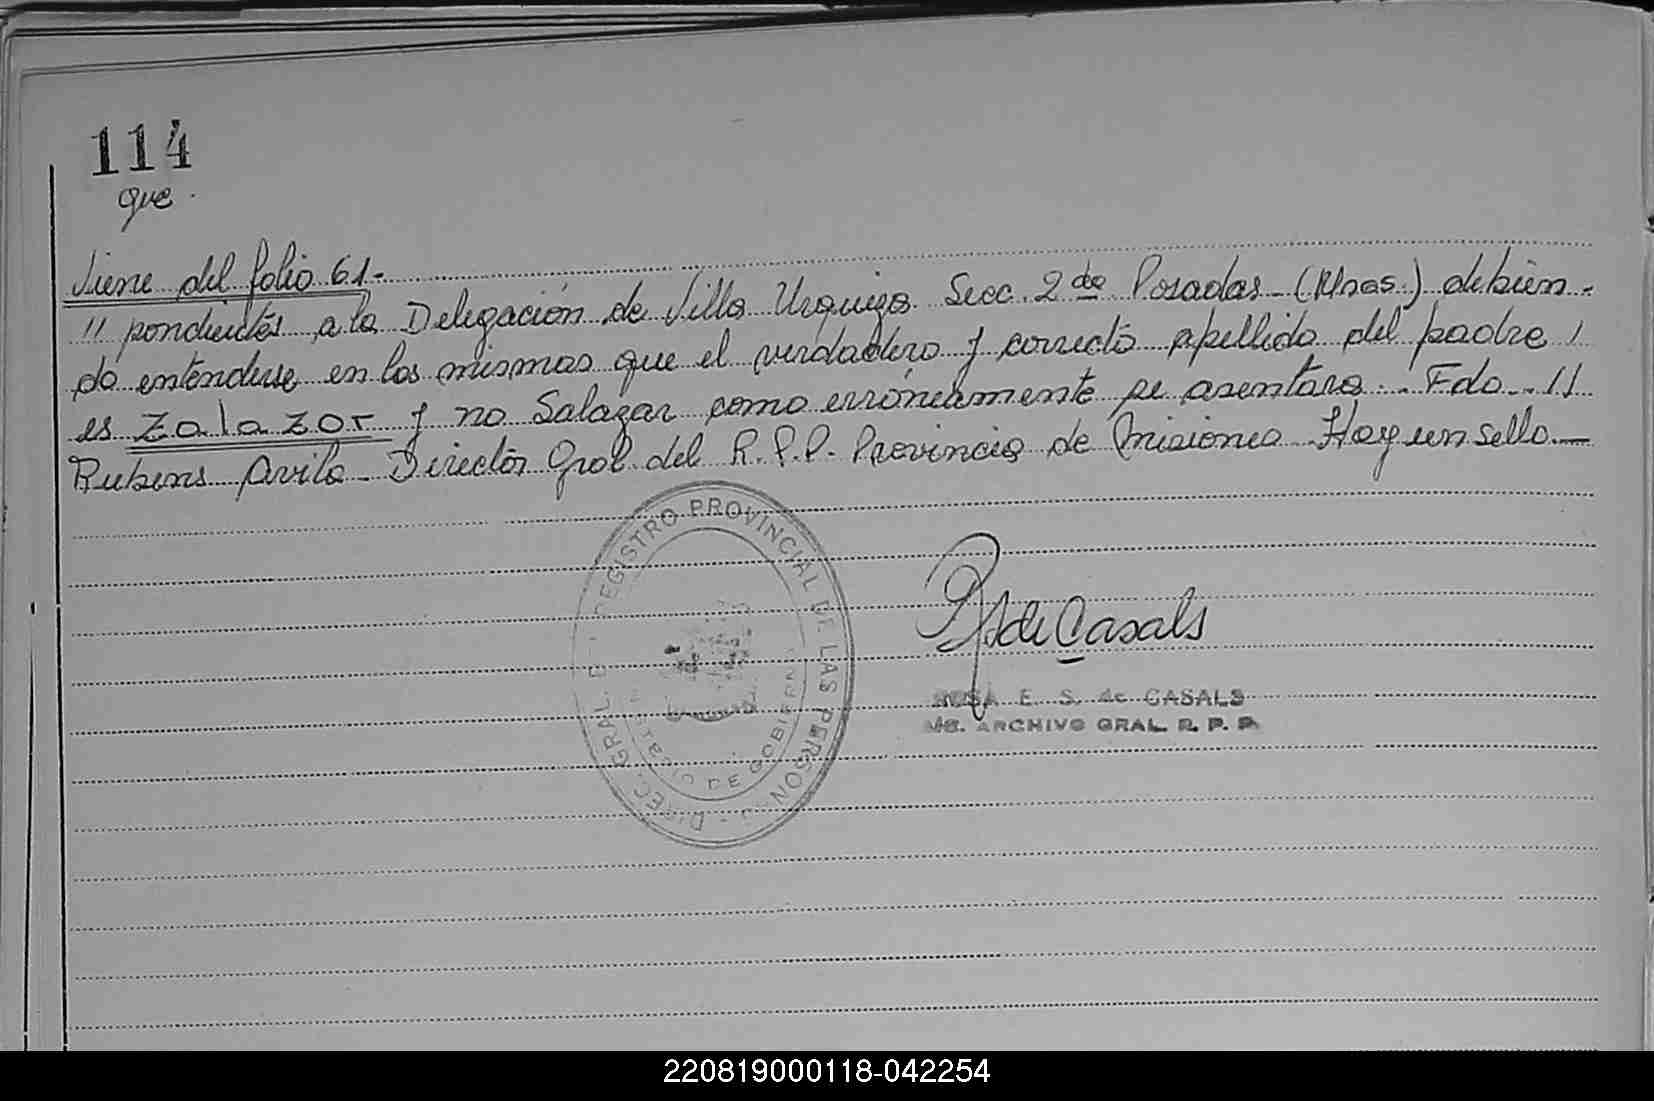 114
que.
Viene del folio 61-
// pondientes a la Delegación de Villa Urquiza Secc. 2 da Posadas - (Mnes.) debién-
do entenderse en las mismas que el verdadero y correcto apellido del padre /
es Zalazor y no Salazar como erróneamente se asentara. - Fdo. - //
Rubens Avila - Director Gral. del R.P.P. Provincia de Misiones Hay un sello. -
DIREC. GRAL. REGISTRO PROVINCIAL DE LAS PERSONAS
DE GOBIERNO
de Casals
ROSA E. S. de CASALS
ARCHIVO GRAL. R. P. P.
220819000118-042254